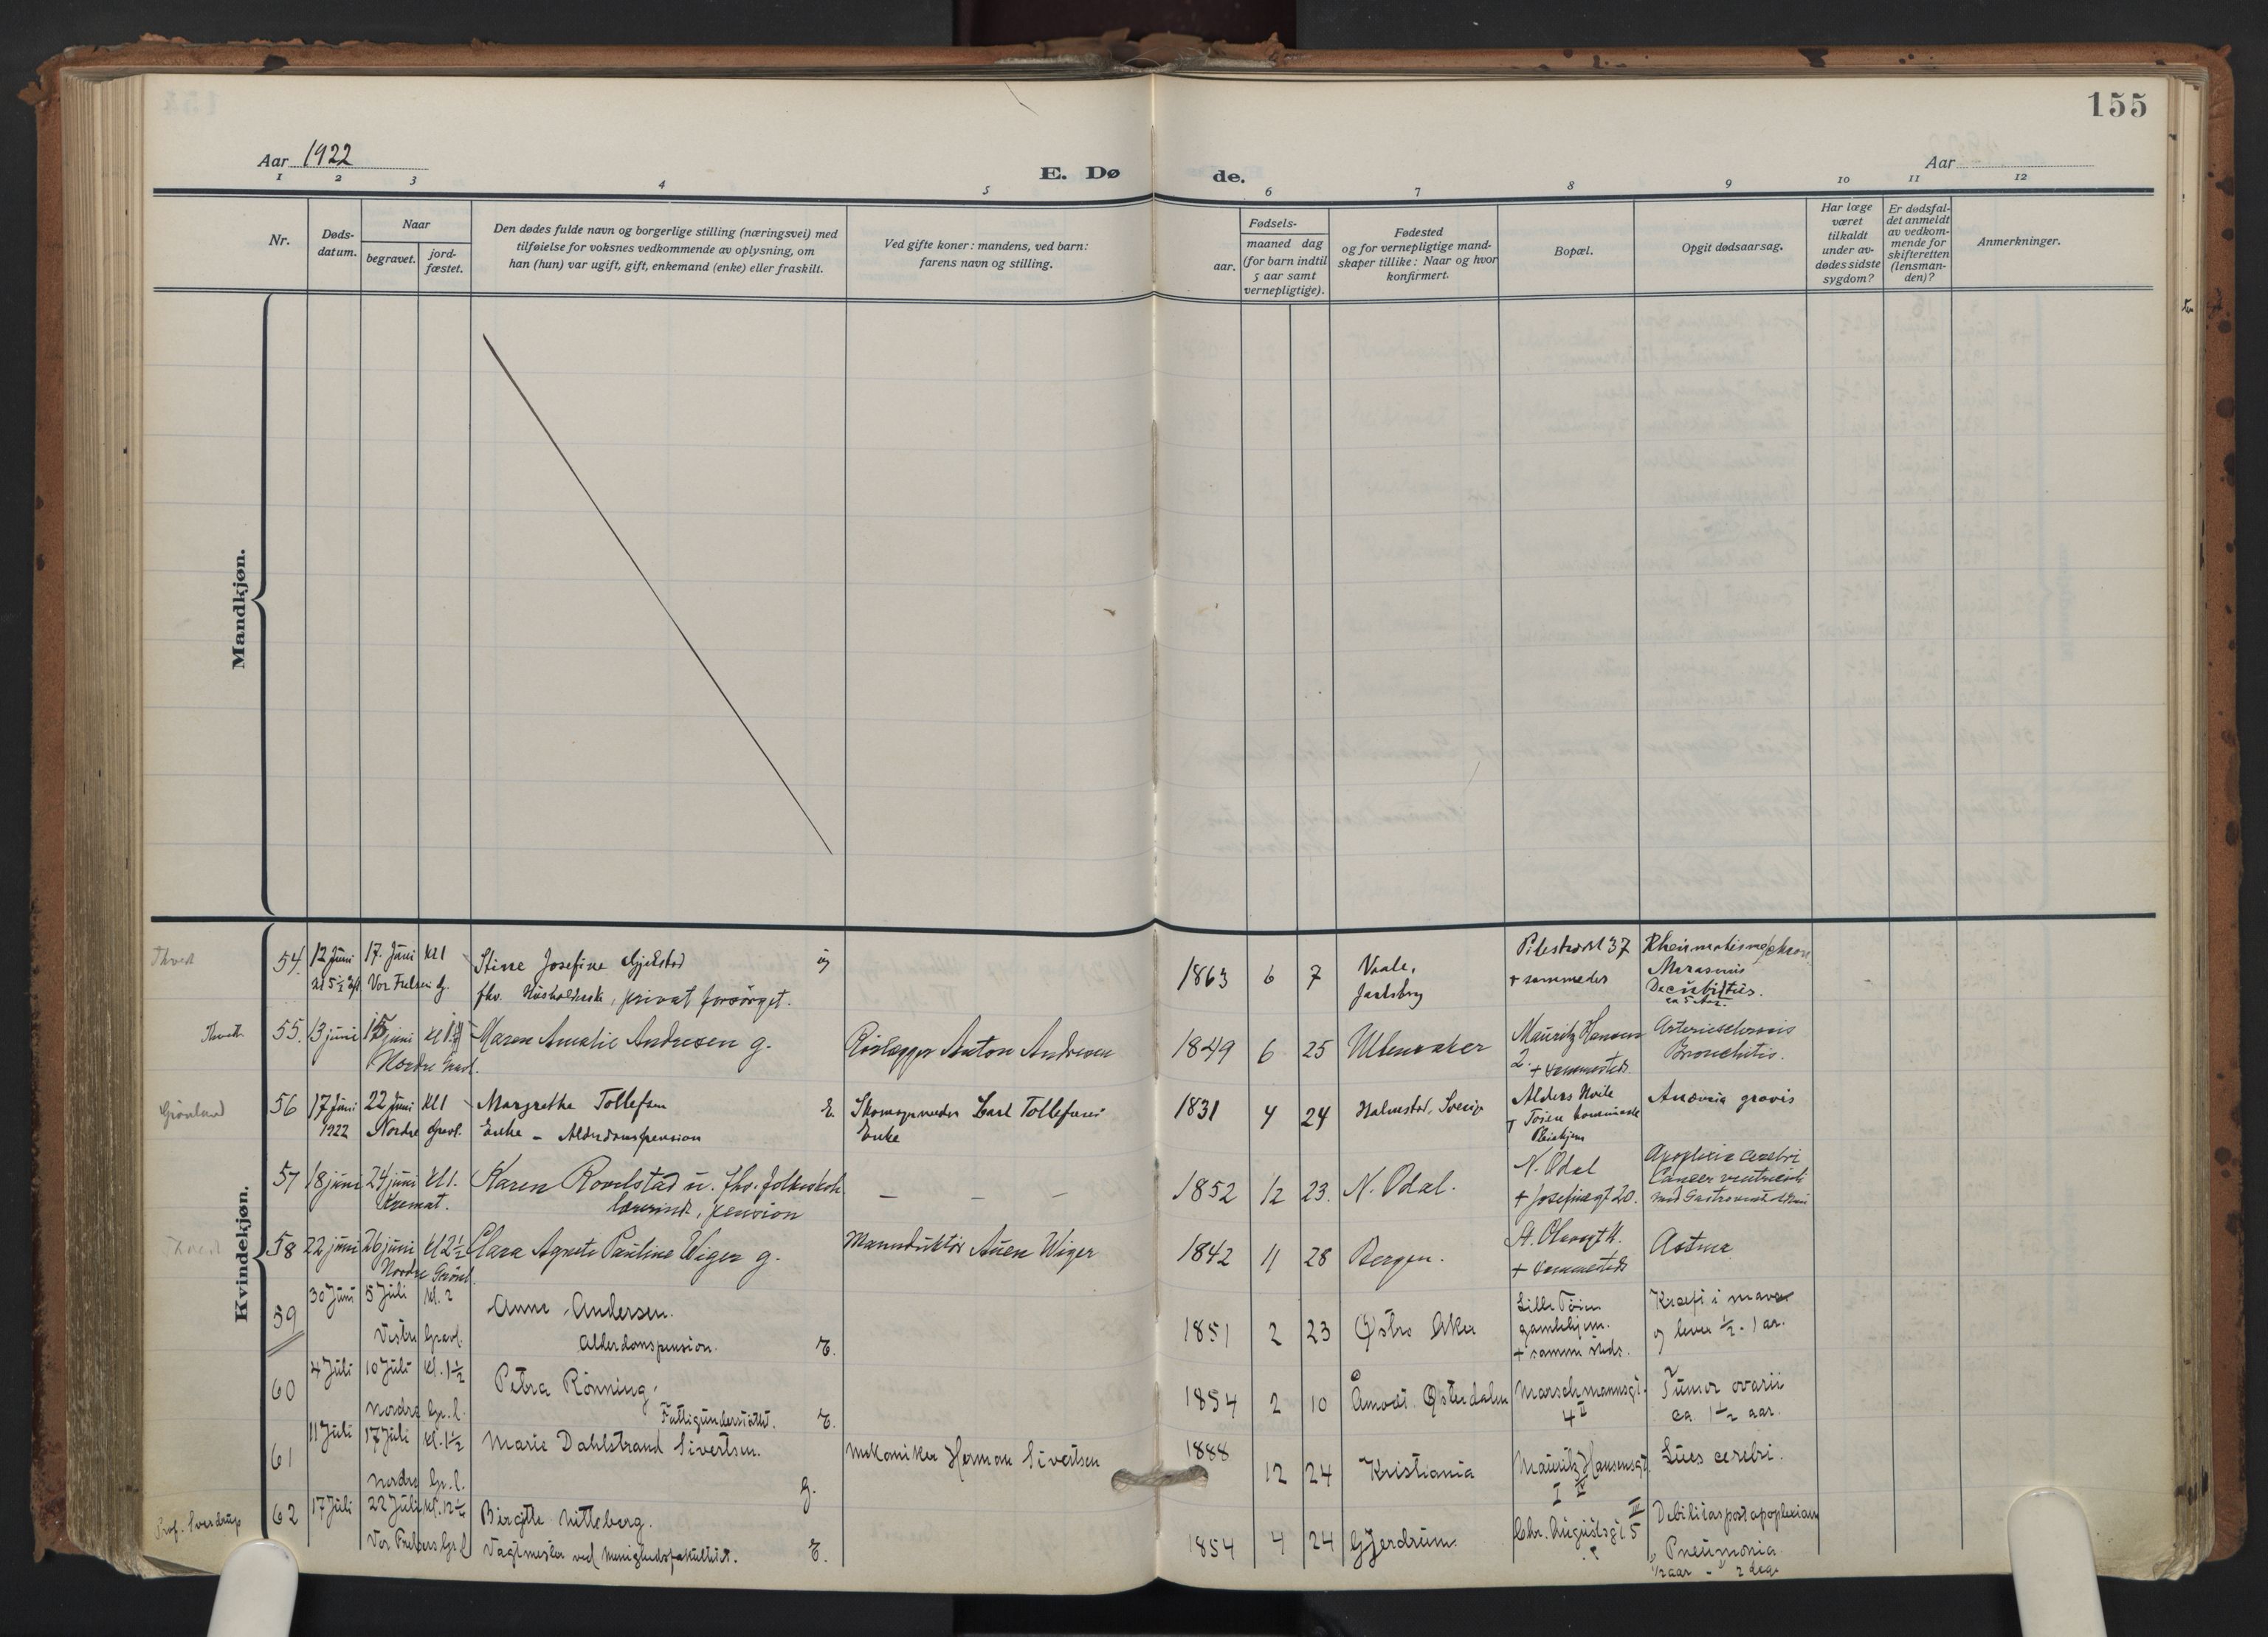 155
Aar 1922
E. Dø de.
Aar
1 2 3 4 5 6 7 8 9 10 11 12
Nr.
Døds-
datum.
Naar
begravet.
jord-
fæstet.
Den dødes fulde navn og borgerlige stilling (næringsvei) med
tilføielse for voksnes vedkommende av oplysning, om
han (hun) var ugift, gift, enkemand (enke) eller fraskilt.
Ved gifte koner: mandens, ved barn:
farens navn og stilling.
Fødsels-
aar.
maaned dag
(for barn indtil
5 aar samt
vernepligtige).
Fødested
og for vernepligtige mand-
skaper tillike: Naar og hvor
konfirmert.
Bopæl.
Opgit dødsaarsag.
Har læge
været
tilkaldt
under av-
dødes sidste
sygdom?
Er dødsfal-
det anmeldt
av vedkom-
mende for
skifteretten
(lensman-
den)?
Anmerkninger.
Mandkjøn.
Kvindekjøn.
54. 12 Juni 17. Juni Kl 1 Stine Josefine ug 1863 6 7 Vaale, Pilestrædet 37
Vor Frelsers g. fhv. Husholderske, privat forsørget. Jarlsberg + sammesteds Marasmus
Decubitus.
ca 5 aar.
55. 13 juni 15 juni Maren Amalie Andresen g. Rørlægger Anton Andresen 1849 6 25 Ullensaker Mauritz Hansens Arteriosclerosis
Nordre Gravl. 2. + sammesteds Bronchitis.
Grønland 56 17 Juni 22 Juni Kl 1 Margrethe Tollefsen E. Skomagermester Carl Tollefsens 1831 4 24 Halmstad, Sverige Alders Hvile Anæmia gravis
1922 Nordre Gravl. Enke - Alderdomspension Enke + Tøien kommunale
Pleiehjem
57 18 juni 24 juni Kl 1. Karen Rovelstad u. fhv. folkeskole - - - 1852 12 23. N. Odal. N. Odal Apoplexia cerebri
Kremat. lærerinde, pension + Josefinegt 20. Cancer ventriculi
58 22 juni 26 juni Kl 2½ Clara Agnete Pauline Wiger g. Wiger 1842 11 28 Bergen. St. Olavsgt Astma
Nordre Gravl. + sammesteds
59 30 Juni 5 Juli Kl. 2 Anna Andersen. 1851 2 23 Østre Aker Lille Tøien Kræft i maven
Vestre Gravl. Alderdomspension. E. gamlehjem. og lever ½ - 1 aar.
+ samme steds.
60 4 Juli 10 Juli Kl. 1½ Petra Rønning, 1854 2 10 Åmodt Østerdalen Marschmannsgt. Tumor ovarii
Nordre Gr. l. Fattigunderstøttet. E. 4 II ca 1½ aar.
61 11 Juli 17 Juli Kl. 1½ Marie Dahlstrand Sivertsen. Mekaniker Herman Sivertsen 1888 12 24 Kristiania Mauritz Hansensgt. Lues cerebri.
Nordre Gr. l. g.
Prof. Sverdrup 62 17 Juli 22 Juli Birgitte Nitteberg. 1854 4 24 Gjerdrum. Chr. Augustsgt 5 III Debilitas post apoplexiam
Vor Frelsers Gr. l. Vagtmester ved Menighedsfakultetet. E. Pneumonia
½ aar - 2 dage